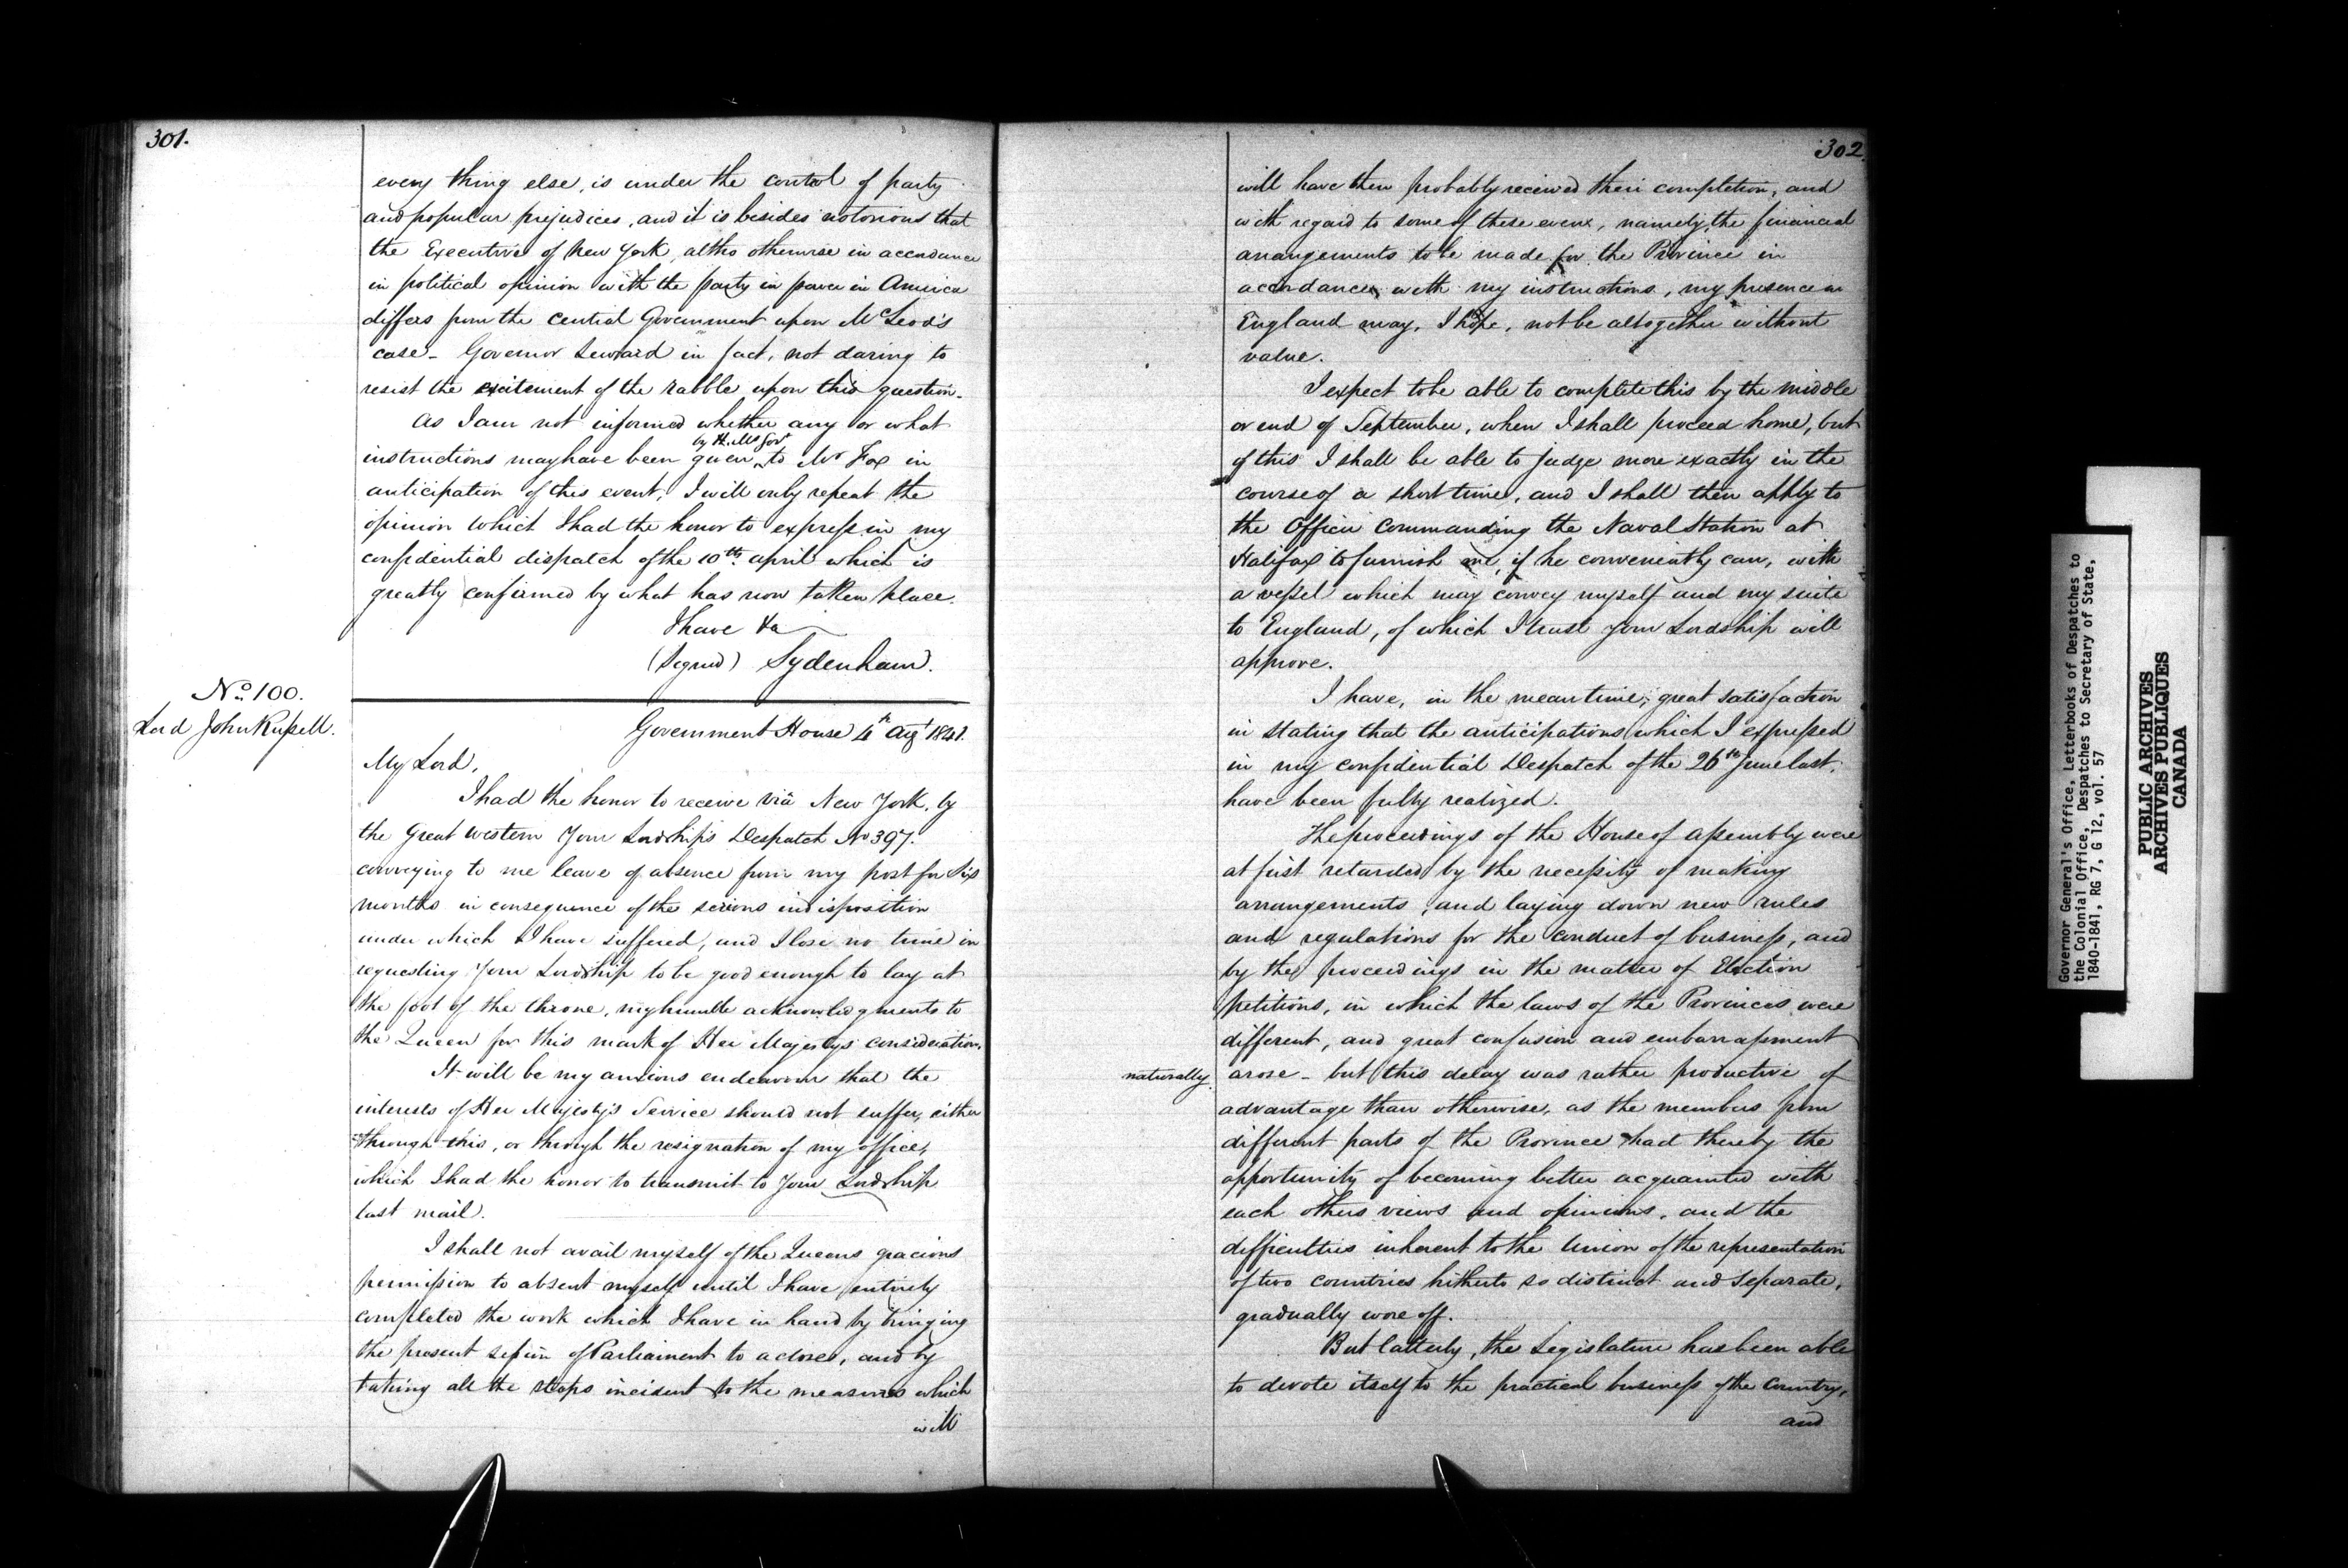 301.
every thing else, is under the control of party
and popular prejudices, and it is besides notorious that
the Executive of New York, altho otherwise in accordance
in political opinion with the party in power in America
differs from the Central Government upon McLeod's
case - Governor Seward in fact, not daring to
resist the excitement of the rabble upon this question.
As I am not informed whether any or what
by H. Ms Govt
instructions may have been given, to Mr Fox in
anticipation of this event, I will only repeat the
opinion which I had the honor to express in my
confidential dispatch of the 10th april which is
greatly confirmed by what has now taken place.
I have &a
(Signed) Sydenham.
No. 100.
Lord John Russell.
Government House 4th Augt 1841.
My Lord,
I had the honor to receive via New York, by
the Great Western Your Lordship's Despatch No 397.
conveying to me leave of absence from my post for Six
months in consequence of the serious indisposition
under which I have suffered, and I lose no time in
requesting Your Lordship to be good enough to lay at
the foot of the throne, my humble acknowledgments to
the Queen for this mark of Her Majesty's consideration.
It will be my anxious endeavour that the
interests of Her Majesty's Service should not suffer, either
through this, or through the resignation of my office,
which I had the honor to transmit to Your Lordship
last mail.
I shall not avail myself of the Queens gracious
permission to absent myself until I have entirely
completed the work which I have in hand by bringing
the present session of Parliament to a close, and by
taking all the steps incident to the measures which
will
302.
will have then probably received their completion, and
with regard to some of these even, namely, the financial
arrangements to be made for the Province in
accordance with my instructions, my presence in
England may, I hope, not be altogether without
value.
I expect to be able to complete this by the middle
or end of September, when I shall proceed home, but
of this I shall be able to judge more exactly in the
course of a short time, and I shall then apply to
the Officer Commanding the Naval Station at
Halifax to furnish me, if he conveniently can, with
a vessel which may convey myself and my suite
to England, of which I trust Your Lordship will
approve.
I have, in the meantime, great satisfaction
in stating that the anticipations which I expressed
in my confidential Despatch of the 26th June last,
have been fully realized.
The proceedings of the House of Assembly were
at first retarded by the necessity of making
arrangements, and laying down new rules
and regulations for the conduct of business, and
by the proceedings in the matter of Election
petitions, in which the laws of the Provinces were
different, and great confusion and embarrassment
naturally
arose - but this delay was rather productive of
advantage than otherwise, as the members from
different parts of the Province had thereby the
opportunity of becoming better acquainted with
each others views and opinions, and the
difficulties inherent to the Union of the representation
of two countries hitherto so distinct and separate,
gradually wore off.
But latterly, the Legislature has been able
to devote itself to the practical business of the Country,
and
Governor General's Office, Letterbooks of Despatches to
the Colonial Office, Despatches to Secretary of State,
1840-1841, RG 7, G 12, vol. 57
PUBLIC ARCHIVES
ARCHIVES PUBLIQUES
CANADA